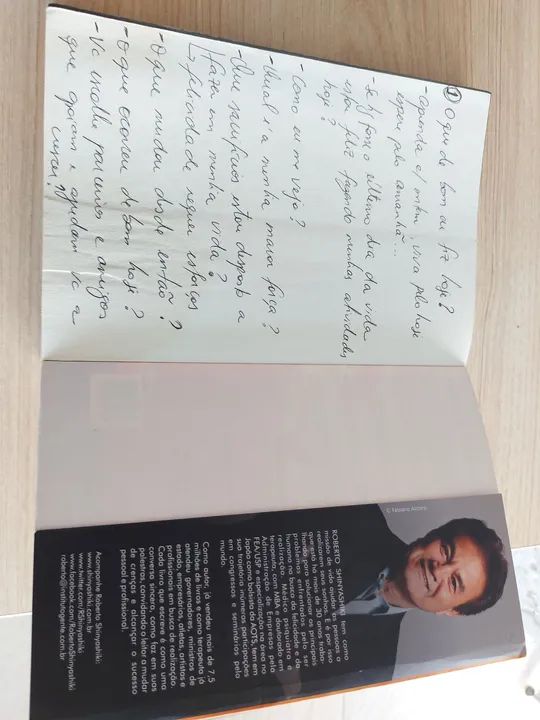 ① O que de bom eu fiz hoje?
- agenda c/ mkm, viva pelo hoje
espere pelo amanhã...
- Se hj fosse o último dia da vida
estou feliz fazendo minhas atividades
hoje?
- Como eu me vejo?
- Qual é a minha maior força?
- Que sacrifícios estou disposto a
fazer em minha vida?
↳ felicidade requer esforços
- O que mudou desde então?
- O que ocorreu de bom hoje?
- Vc escolhe parceiros e amigos
que apoiam e ajudam vc a
© Fabiano Accorsi
ROBERTO SHINYASHIKI tem como
missão de vida ajudar as pessoas a
realizarem seus sonhos. E é por isso
que já há mais de 30 anos traba-
lhando para solucionar os principais
problemas enfrentados pelo ser
humano na busca da felicidade e da
realização. Médico psiquiatra e
terapeuta, com MBA e doutorado em
Administração de Empresas pela
FEA/USP e especialização na área no
Japão como bolsista da AOTS, tem em
sua trajetória inúmeras participações
em congressos e seminários pelo
mundo.
Como autor, já vendeu mais de 7,5
milhões de livros e como terapeuta já
atendeu governadores, ministros de
estado, empresários, atletas, artistas e
profissionais em busca de realização.
Cada livro que escreve é como uma
conversa sincera, como faz em suas
palestras, ajudando o leitor a mudar
de crenças e alcançar o sucesso
pessoal e profissional.
Acompanhe Roberto Shinyashiki:
www.shinyashiki.com.br
www.twitter.com/RShinyashiki
www.facebook.com/RobertoShinyashiki
roberto@institutogente.com.br